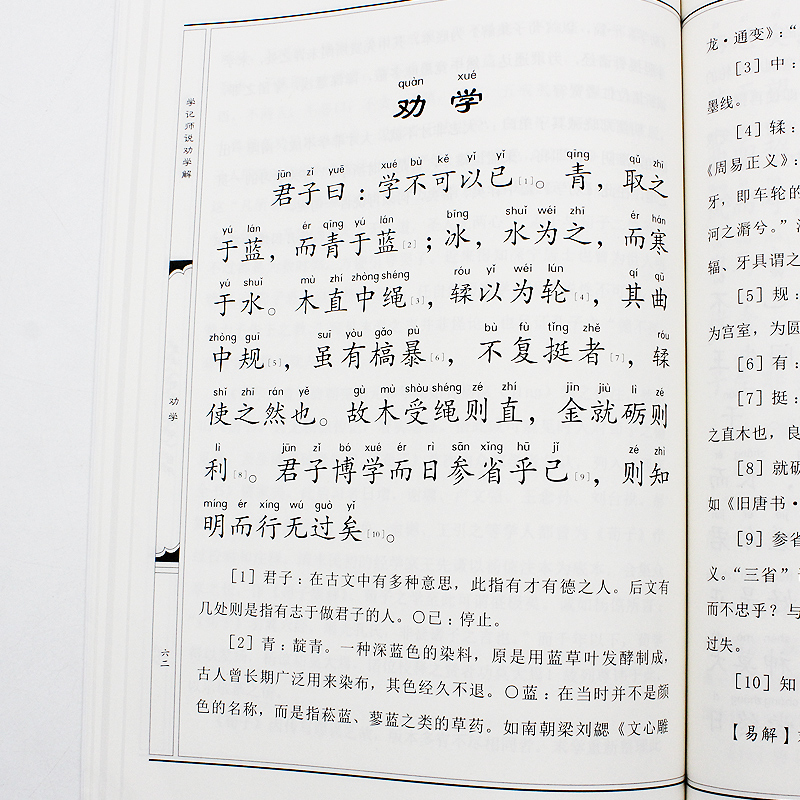 学记师说劝学解
劝学
六二
quàn xué
劝学
jūn zǐ yuē xué bù kě yǐ yǐ qīng qǔ zhī
君子曰：学不可以已[1]。青，取之
yú lán ér qīng yú lán bīng shuǐ wéi zhī ér hán
于蓝，而青于蓝[2]；冰，水为之，而寒
yú shuǐ mù zhí zhòng shéng róu yǐ wéi lún qí qū
于水。木直中绳[3]，輮以为轮[4]，其曲
zhòng guī suī yǒu gǎo pù bú fù tǐng zhě róu
中规[5]，虽有槁暴[6]，不复挺者[7]，輮
shǐ zhī rán yě gù mù shòu shéng zé zhí jīn jiù lì zé
使之然也。故木受绳则直，金就砺则
lì jūn zǐ bó xué ér rì sān xǐng hū jǐ zé zhì
利[8]。君子博学而日参省乎己[9]，则知
míng ér xíng wú guò yǐ
明而行无过矣[10]。
[1] 君子：在古文中有多种意思，此指有才有德之人。后文有
几处则是指有志于做君子的人。〇已：停止。
[2] 青：靛青。一种深蓝色的染料，原是用蓝草叶发酵制成，
古人曾长期广泛用来染布，其色经久不退。〇蓝：在当时并不是颜
色的名称，而是指菘蓝、蓼蓝之类的草药。如南朝梁刘勰《文心雕
龙·通变》：“
[3] 中：
墨线。
[4] 輮：
《周易正义》：
牙，即车轮的
河之湑兮。”
辐、牙具谓之
[5] 规：
为宫室，为圆
[6] 有：
[7] 挺：
之直木也，良
[8] 就砺
如《旧唐书·
[9] 参省
义。“三省”
而不忠乎？与
过失。
[10] 知
【易解】